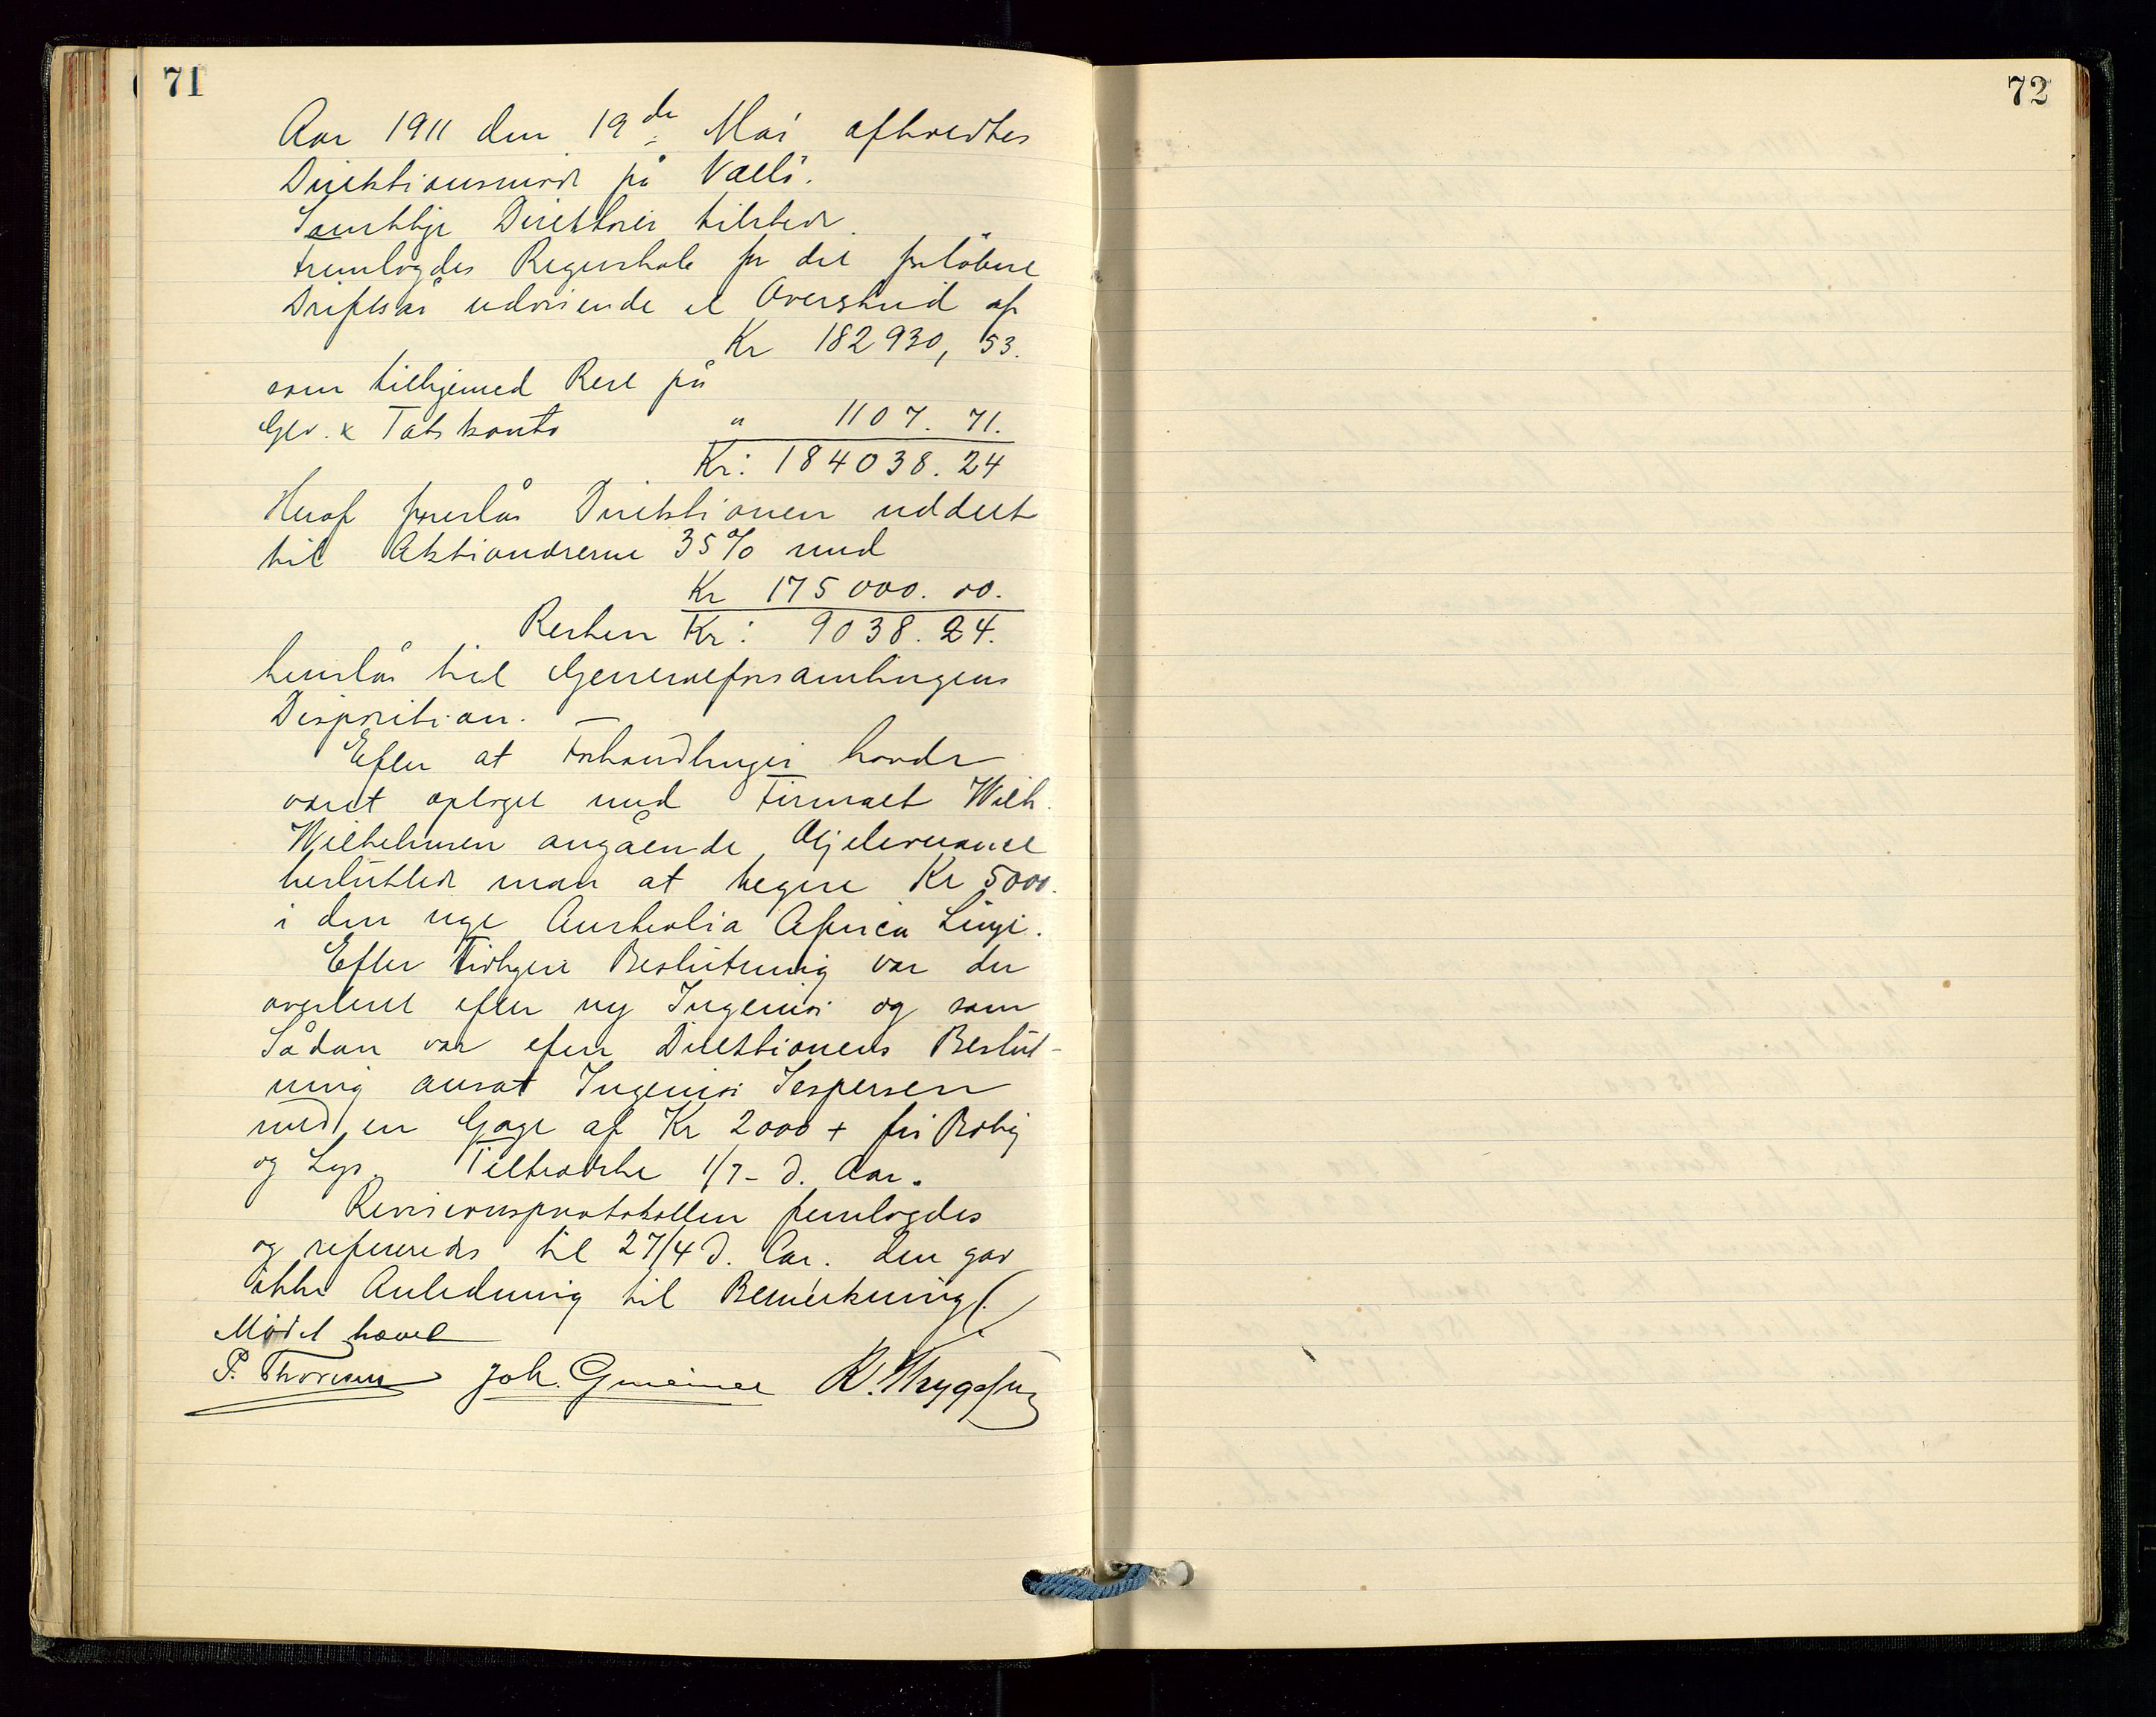 71
Aar 1911 den 19de Mai afholdtes
Direktionsmöde på Vallö.
Samtlige Direktörer tilstede.
Fremlagdes Regnskab for det forlöbne
Driftsår udvisende et Overskud af
Kr 182930,53.
som tilligemed Rest på
Gev. & Tabskonto " 1107.71.
Kr: 184038.24
Heraf foreslår Direktionen uddelt
til Aktionærerne 35% med
Kr 175000.00.
Resten Kr: 9038.24.
henstår til Generalforsamlingens
Disposition.
Efter at Forhandlinger havde
været optaget med Firmaet Wilh.
Wilhelmsen angående Oljeleverance
besluttede man at tegne Kr 5000.
i den nye Australia Africa Linje.
Efter tidligere Beslutning var der
averteret efter ny Ingeniör og som
Sådan var efter Direktionens Beslut-
ning ansat Ingeniör Jespersen
med en Gage af Kr 2000 + fri Bolig
og Lys. Tiltrædelse 1/7- d. Aar.
Revisionsprotokollen fremlagdes
og refereredes til 27/4 d. Aar. den gav
ikke Anledning til Bemerkning.
Mödet hævet
P. Thoresen Joh. Gmeiner
72